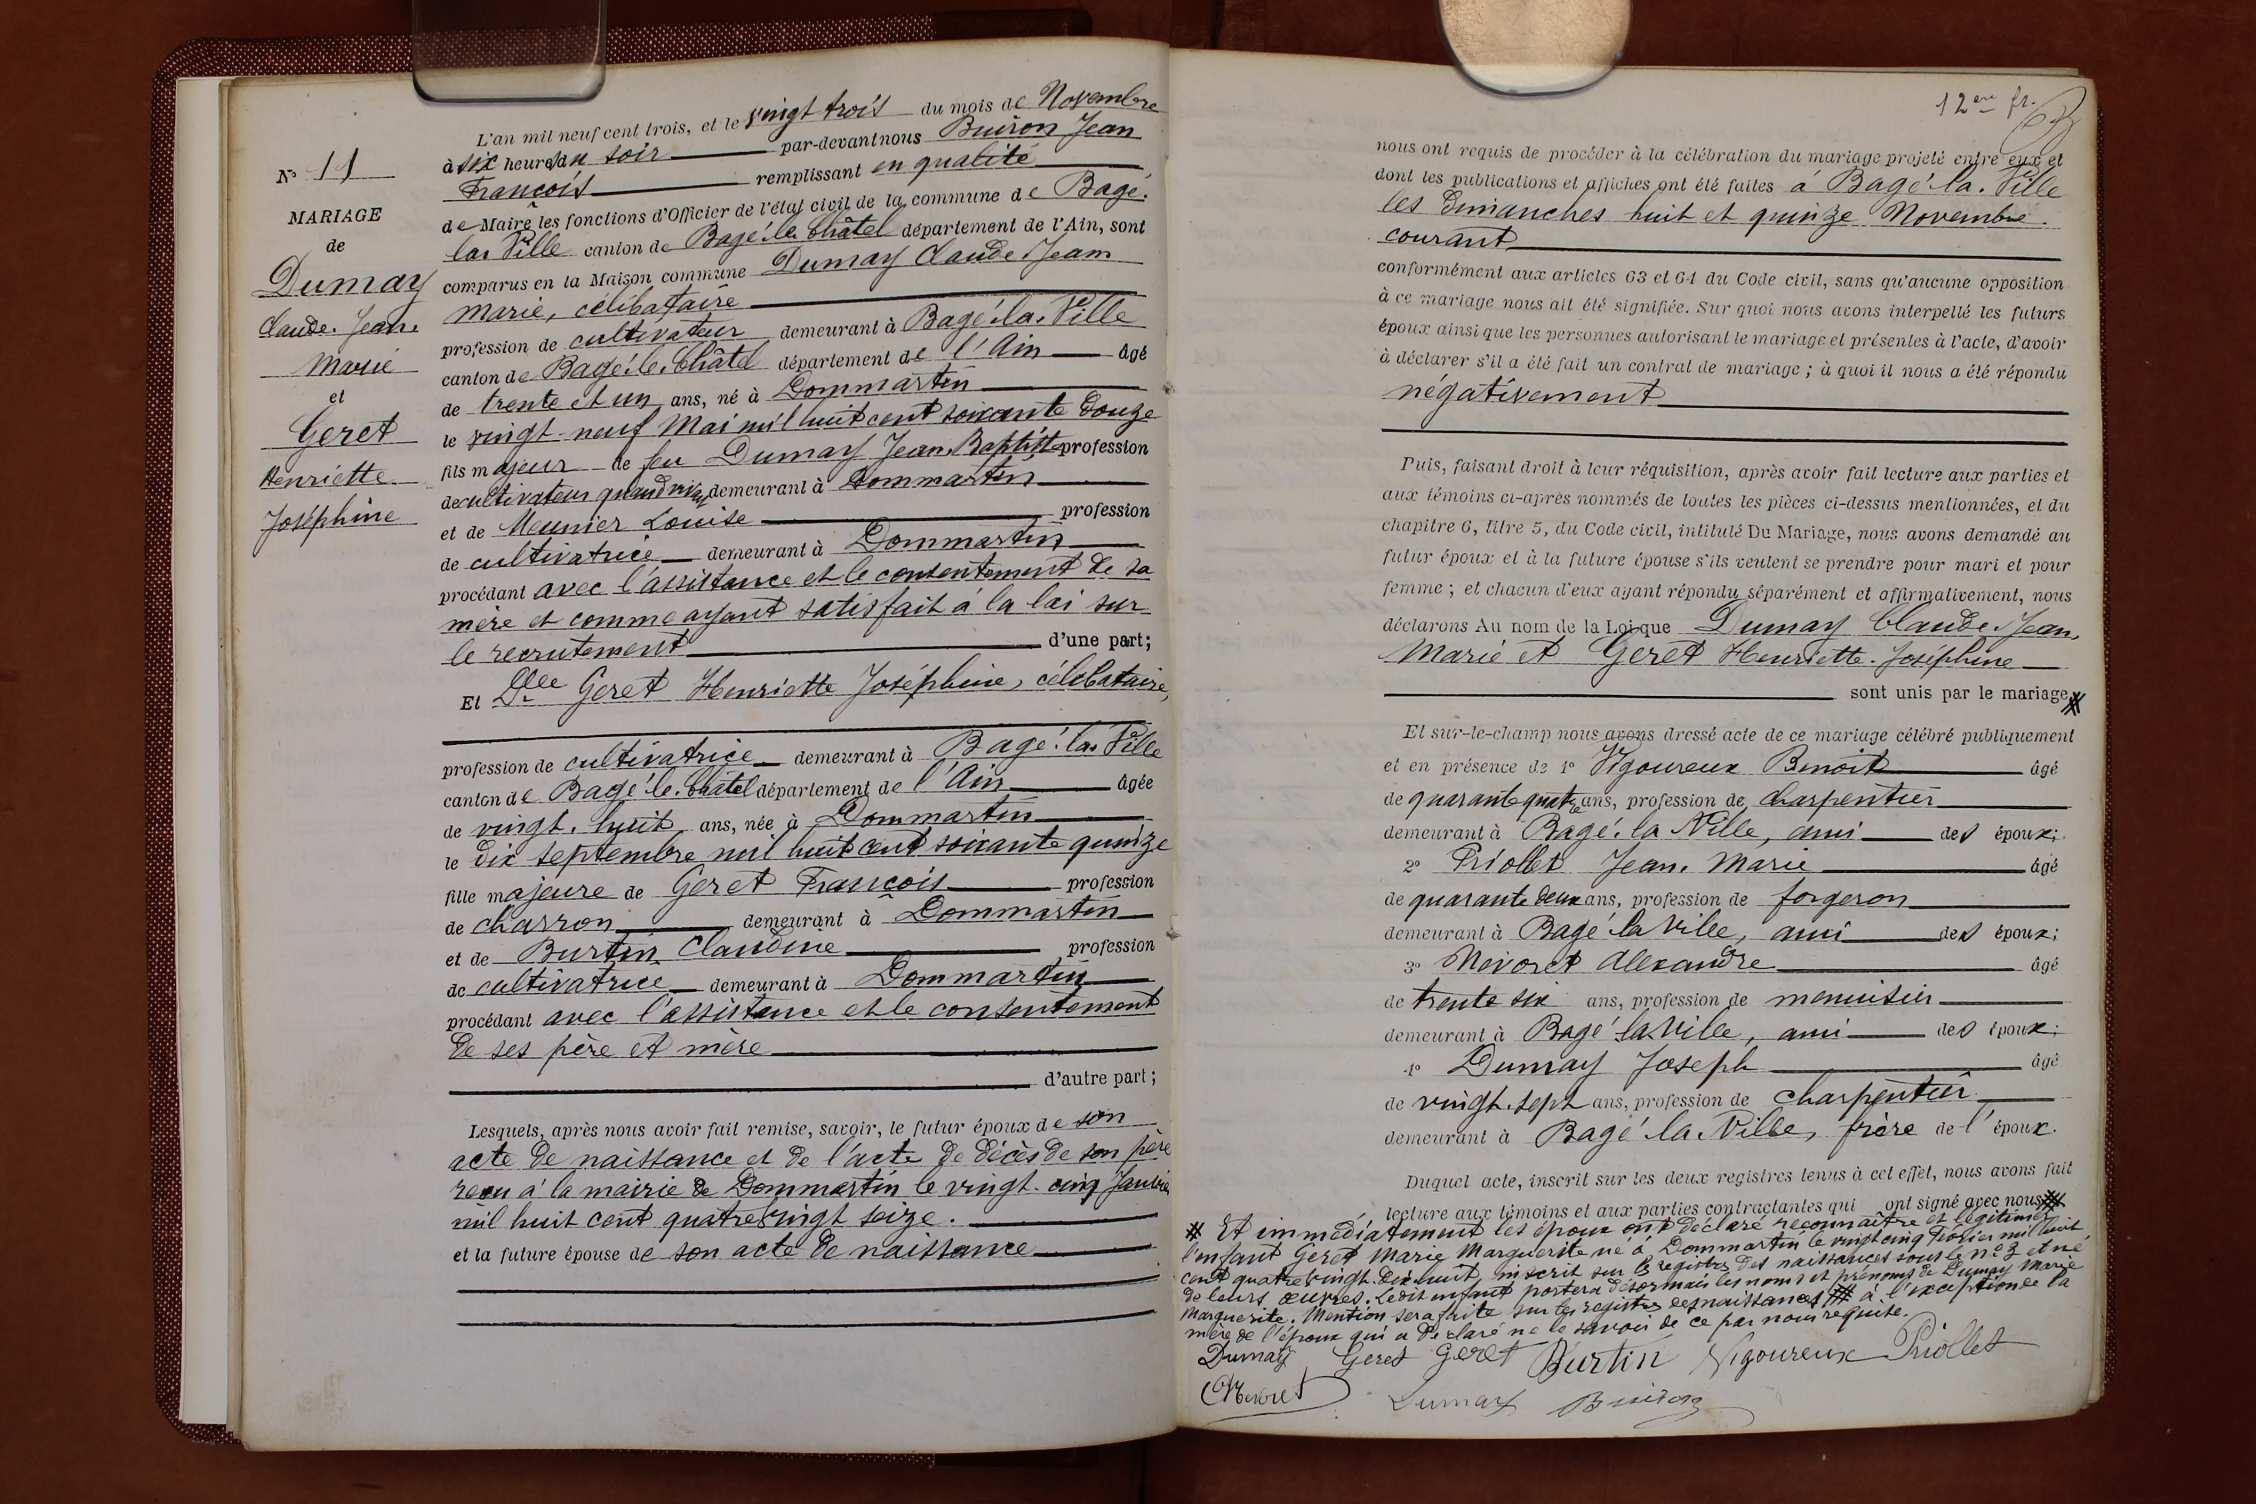 N° 11
MARIAGE
de
Dumay
Claude. Jean.
Marie
et
Geret
Henriette.
Joséphine
L'an mil neuf cent trois, et le vingt trois du mois de Novembre
à six heures du soir par-devant nous Buiron Jean
François remplissant en qualité
de Maire les fonctions d'Officier de l'état civil de la commune de Bagé.
la. Ville canton de Bagé. le. Châtel département de l'Ain, sont
comparus en la Maison commune Dumay Claude Jean
Marie, célibataire
profession de cultivateur demeurant à Bagé. la. Ville
canton de Bagé. le. Châtel département de l'Ain âgé
de trente et un ans, né à Dommartin
le vingt-neuf Mai mil huit cent soixante douze
fils majeur de feu Dumay Jean. Baptiste profession
de cultivateur quand vivait demeurant à Dommartin
et de Meunier Louise profession
de cultivatrice demeurant à Dommartin
procédant avec l'assistance et le consentement de sa
mère et comme ayant satisfait à la loi sur
le recrutement d'une part;
Et Dlle Geret Henriette Joséphine, célibataire,
profession de cultivatrice demeurant à Bagé. la. Ville
canton de Bagé. le. Châtel département de l'Ain âgée
de vingt. huit ans, née à Dommartin
le dix septembre mil huit cent soixante quinze
fille majeure de Geret François profession
de charron demeurant à Dommartin
et de Burtin Claudine profession
de cultivatrice demeurant à Dommartin
procédant avec l'assistance et le consentement
de ses père et mère
d'autre part;
Lesquels, après nous avoir fait remise, savoir, le futur époux de son
acte de naissance et de l'acte de décès de son père
reçu à la mairie de Dommartin le vingt. cinq Janvier
mil huit cent quatre vingt seize.
et la future épouse de son acte de naissance
12em fr.
nous ont requis de procéder à la célébration du mariage projeté entre eux et
dont les publications et affiches ont été faites à Bagé. la. Ville
les dimanches huit et quinze Novembre
courant
conformément aux articles 63 et 64 du Code civil, sans qu'aucune opposition
à ce mariage nous ait été signifiée. Sur quoi nous avons interpellé les futurs
époux ainsi que les personnes autorisant le mariage et présentes à l'acte, d'avoir
à déclarer s'il a été fait un contrat de mariage; à quoi il nous a été répondu
négativement
Puis, faisant droit à leur réquisition, après avoir fait lecture aux parties et
aux témoins ci-après nommés de toutes les pièces ci-dessus mentionnées, et du
chapitre 6, titre 5, du Code civil, intitulé Du Mariage, nous avons demandé au
futur époux et à la future épouse s'ils veulent se prendre pour mari et pour
femme; et chacun d'eux ayant répondu séparément et affirmativement, nous
déclarons Au nom de la Loi que Dumay Claude. Jean,
Marie et Geret Henriette. Joséphine
sont unis par le mariage #
Et sur-le-champ nous avons dressé acte de ce mariage célébré publiquement
et en présence de 1° Vigoureux Benoit âgé
de quarante quatre ans, profession de charpentier
demeurant à Bagé. la Ville, ami des époux;
2° Priollet Jean. Marie âgé
de quarante deux ans, profession de forgeron
demeurant à Bagé la Ville, ami des époux;
3° Mevoret Alexandre âgé
de trente six ans, profession de menuisier
demeurant à Bagé la Ville, ami des époux;
4° Dumay Joseph âgé
de vingt. sept ans, profession de charpentier
demeurant à Bagé. la. Ville, frère de l'époux.
Duquel acte, inscrit sur les deux registres tenus à cet effet, nous avons fait
lecture aux témoins et aux parties contractantes qui ont signé avec nous ##
# Et immédiatement les époux ont déclaré reconnaître et légitimer
l'enfant Geret Marie Marguerite né à Dommartin le vingt cinq Février mil huit
cent quatre vingt. dix huit, inscrit sur le registre des naissances sous le n° 3 et né
de leurs œuvres. Ledit enfant portera désormais les noms et prénoms de Dumay Marie
Marguerite. Mention sera faite sur les registres des naissances ## à l'exception de la
mère de l'époux qui a déclaré ne le savoir de ce par nous requise.
Dumay Geret Geret Burtin Vigoureux Priollet
Mevoret Dumay Buiron